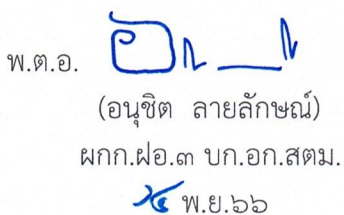 พ.ต.อ.
(อนุชิต ลายลักษณ์)
ผกก.ฝอ.๓ บก.อก.สตม.
พ.ย.๖๖